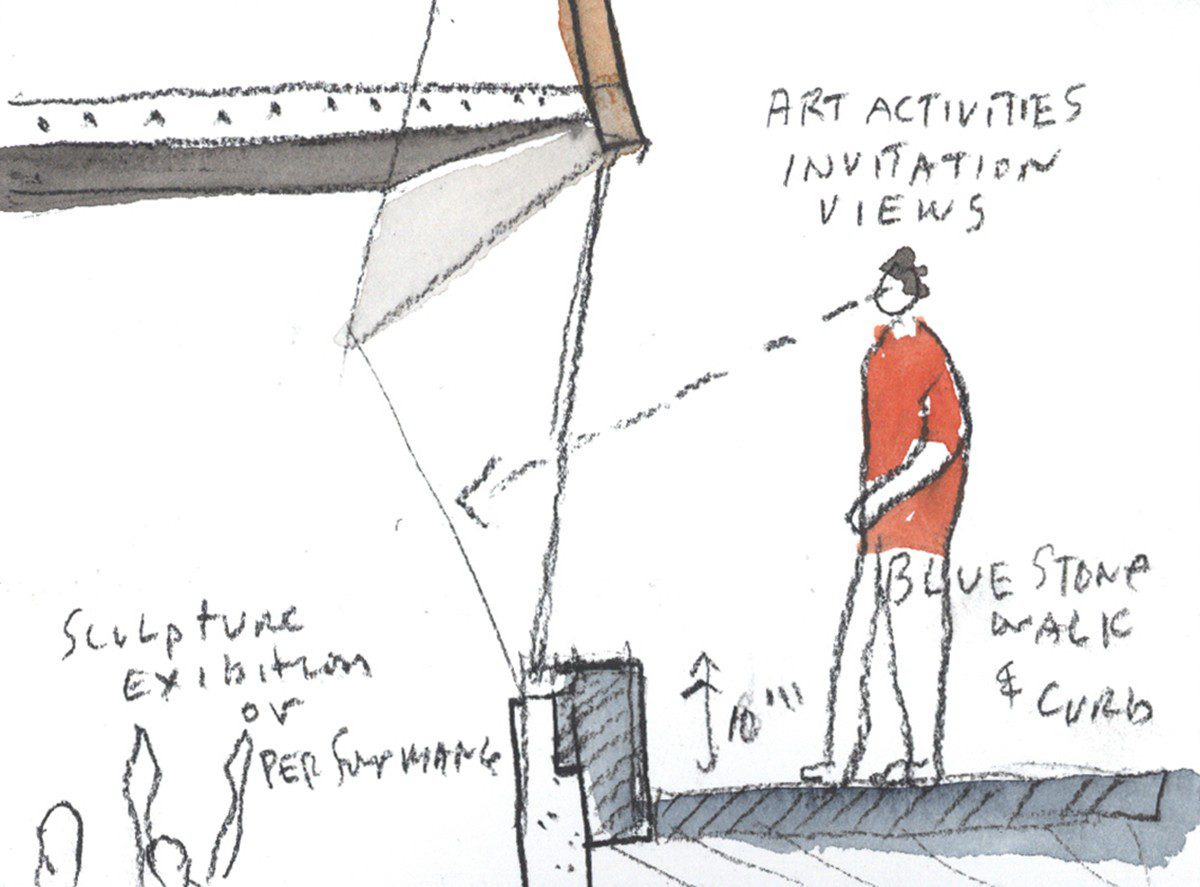 ART ACTIVITIES
INVITATION
VIEWS
BLUE STONE
WALK
& CURB
10"
SCULPTURE
EXIBITION
or